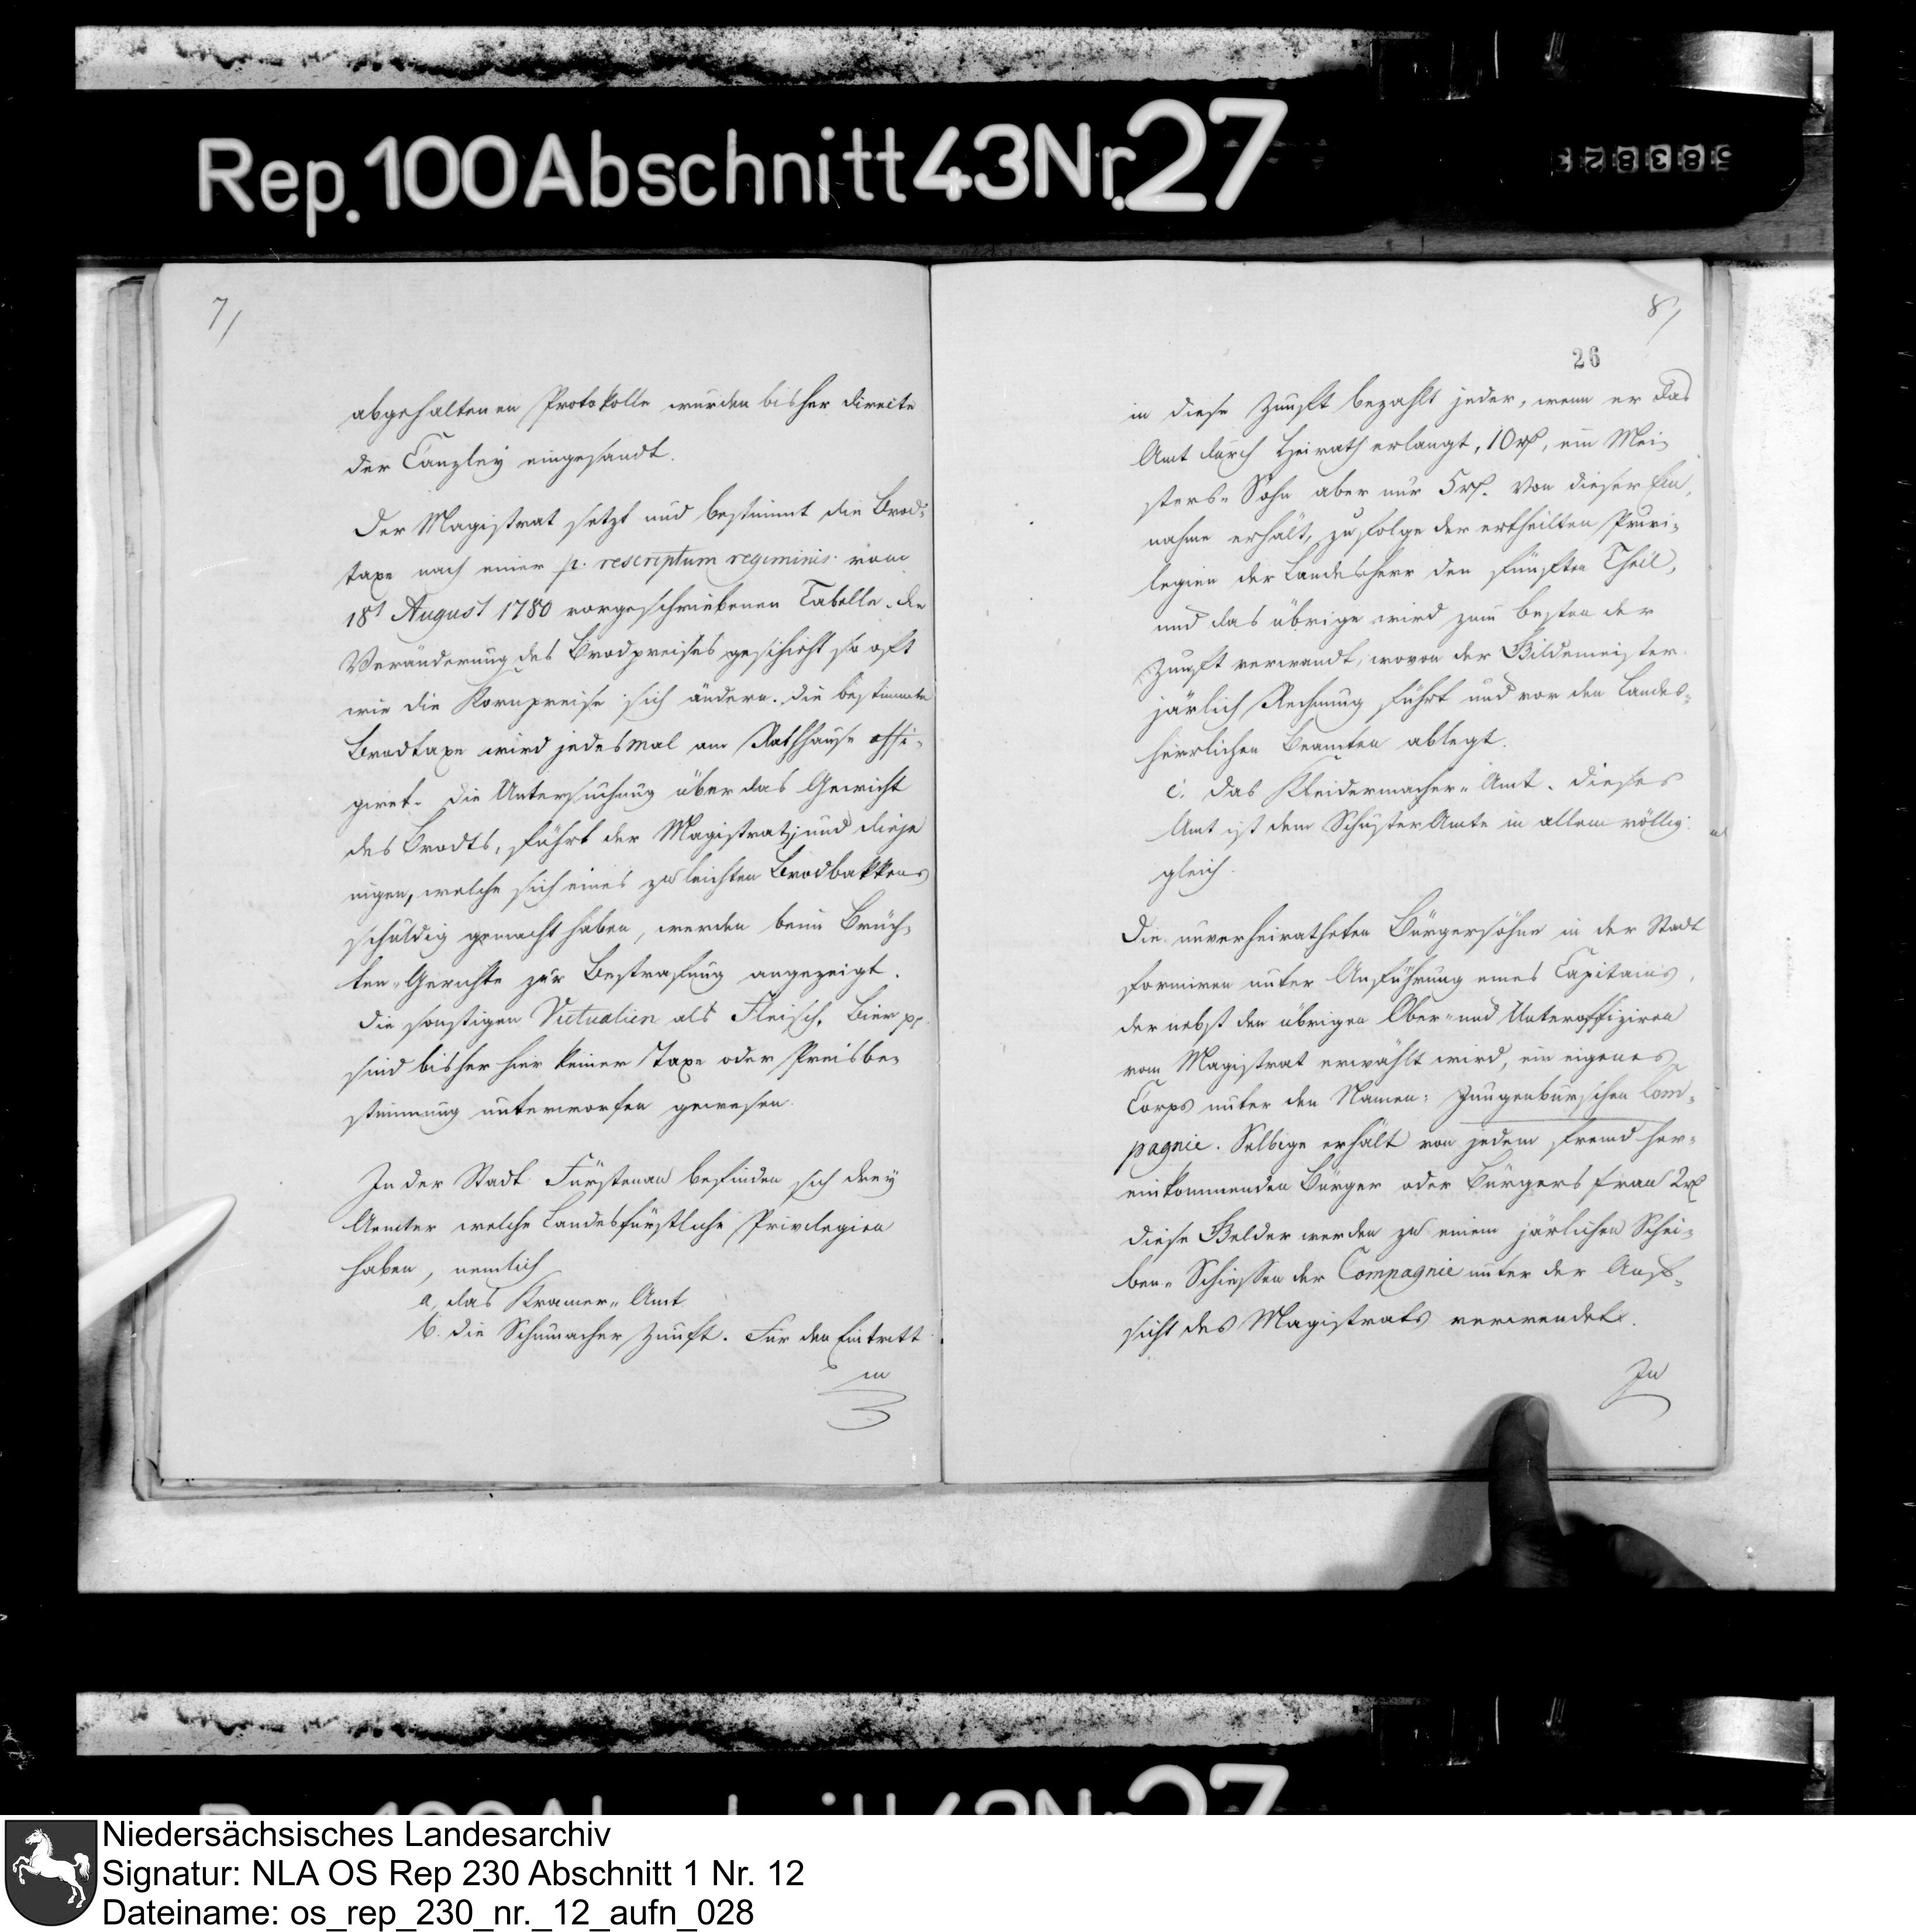 Rep. 100 Abschnitt 43 Nr. 27
58382
7/
abgehaltenen Protokolle wurden bisher directe
der Canzley eingesandt.
Der Magistrat setzt und bestimmt die Brod-
taxe nach einer p. rescriptum regiminis vom
18t August 1780 vorgeschriebenen Tabelle. die
Veränderung des Brodpreises geschieht so oft
wie die Kornpreise sich ändern. die bestimmte
Brodtaxe wird jedesmal am Rathhause affi-
giret. die Untersuchung über das Gewicht
des Brodts, führt der Magistrat; und dieje
nigen, welche sich eines zu leichten Brodbakkens
schuldig gemacht haben, werden beim Brüch-
ten-Gerichte zur Bestrafung angezeigt.
die sonstigen Victualien als Fleisch, Bier pp.
sind bisher hier keiner Taxe oder Preisbe-
stimmung unterworfen gewesen.
In der Stadt Fürstenau befinden sich drey
Aemter welche Landesfürstliche Privilegien
haben, nemlich
a, das Kramer-Amt
b. die Schumacher Zunft. Für den Eintritt
in
8/
26
in diese Zunft bezahlt jeder, wenn er das
Amt durch Heirath erlangt, 10 rß, ein Mei-
sters-Sohn aber nur 5 rß. Von dieser Ein-
nahme erhält, zufolge der ertheilten Privi-
legien der Landesherr den fünften Theil,
und das übrige wird zum besten der
Zunft verwandt, wovon der Gildemeister
järlich Rechnung führt und vor den Landes-
herrlichen Beamten ablegt.
c. das Kleidermacher-Amt. dieses
Amt ist dem Schuster Amte in allem völlig
gleich.
Die unverheiratheten Bürgersöhne in der Stadt
formiren unter Anführung eines Capitains,
der nebst den übrigen Ober- und Unteroffiziren
vom Magistrat erwählt wird, ein eigenes
Corps unter den Namen: Jungenburschen Com-
pagnie. Selbige erhält von jedem fremd her-
einkommenden Bürger oder Bürgersfrau 2 rß
diese Gelder werden zu einem järlichen Schei-
ben-Schiessen der Compagnie unter der Auf-
sicht des Magistrats verwendet.
In
Niedersächsisches Landesarchiv
Signatur: NLA OS Rep 230 Abschnitt 1 Nr. 12
Dateiname: os_rep_230_nr._12_aufn_028